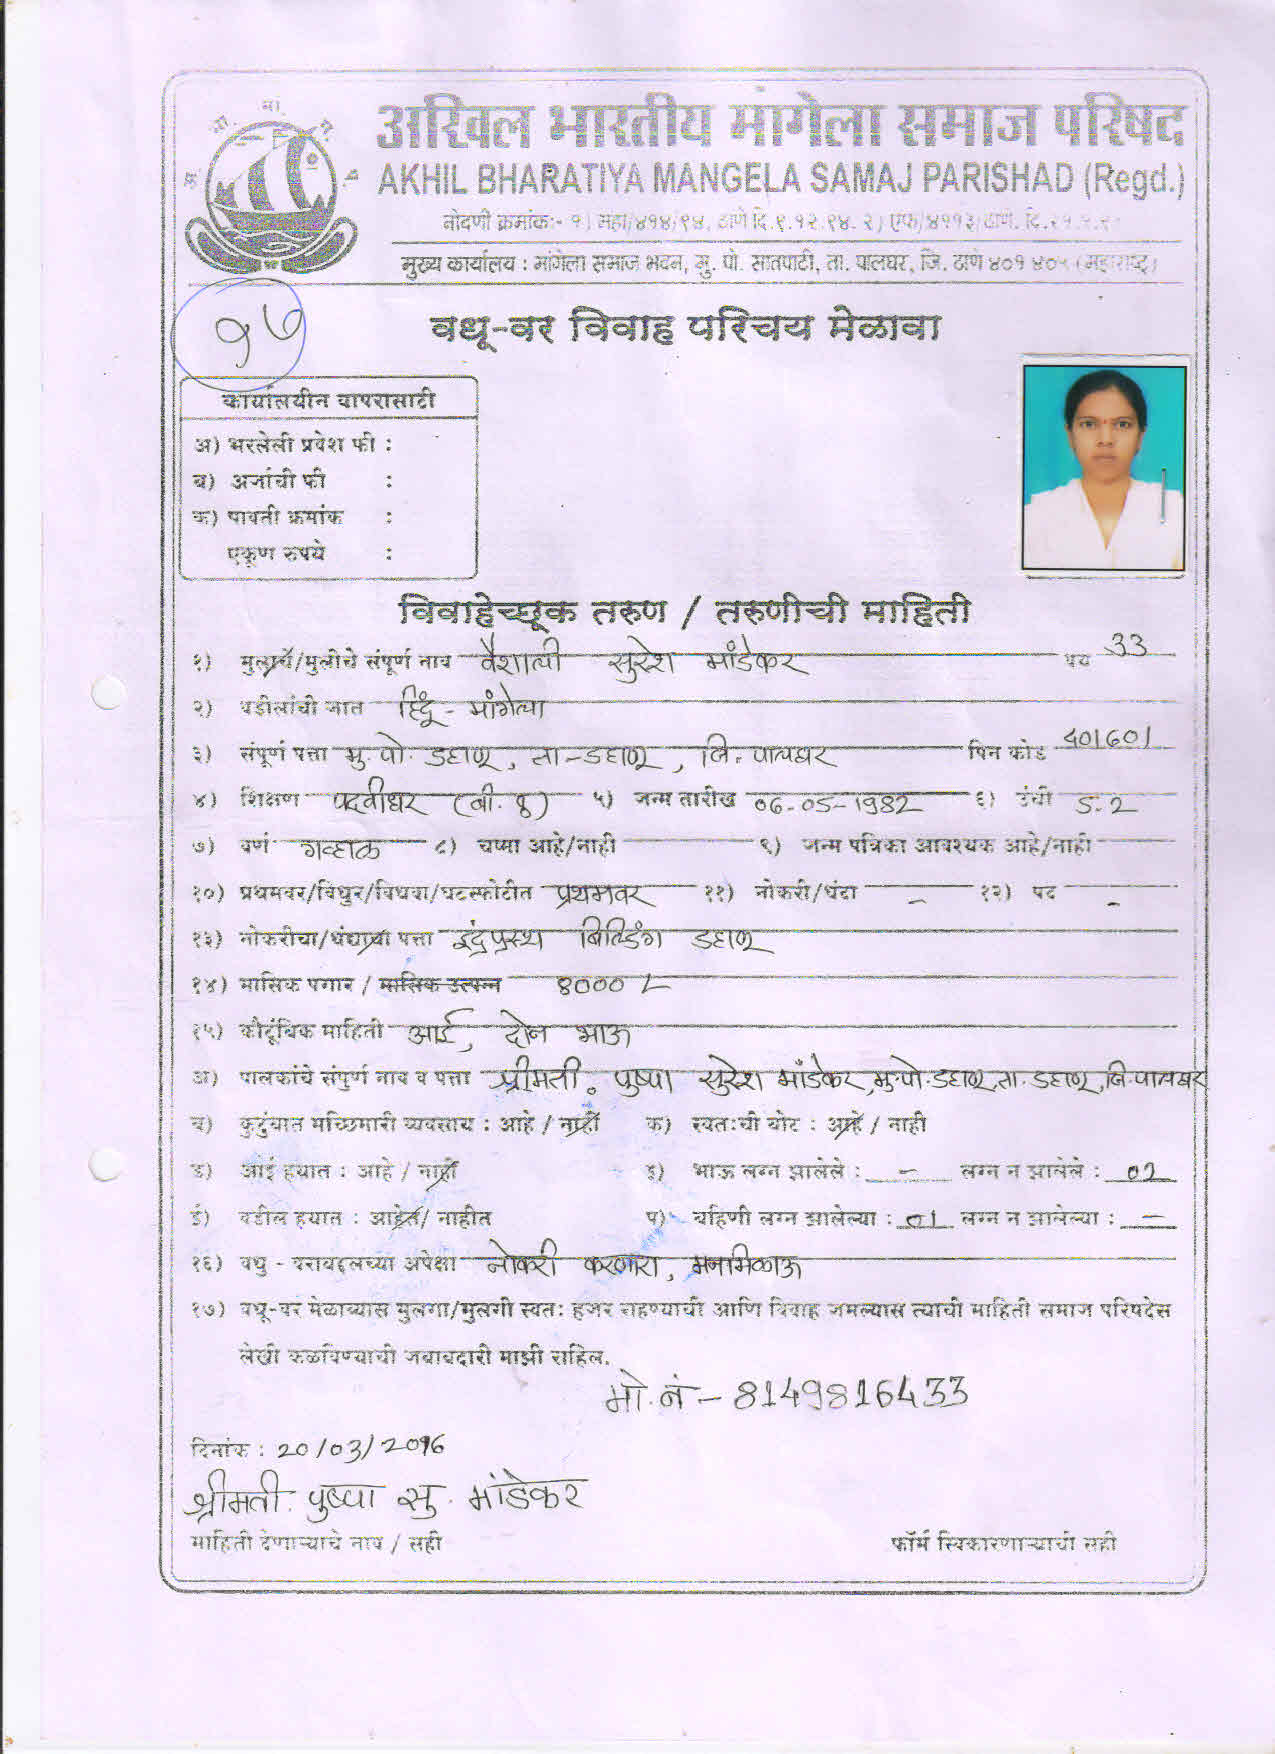 अखिल भारतीय मांगेला समाज परिषद
AKHIL BHARATIYA MANGELA SAMAJ PARISHAD (Regd.)
नोंदणी क्रमांक:- १) महा/४१४/९४, ठाणे दि.९.१२.९४. २) एफ/४११३/ठाणे. दि.
मुख्य कार्यालय : मांगेला समाज भवन, मु. पो. सातपाटी, ता. पालघर, जि. ठाणे ४०१ ४०५ (महाराष्ट्र)
१७
वधू-वर विवाह परिचय मेळावा
कार्यालयीन वापरासाठी
अ) भरलेली प्रवेश फी :
ब) अर्जाची फी :
क) पावती क्रमांक :
एकूण रुपये :
विवाहेच्छूक तरुण / तरुणीची माहिती
१) मुलाचे/मुलीचे संपूर्ण नाव वैशाली सुरेश मांडेकर वय 33
२) वडीलांची जात हिंदू - मांगेला
३) संपूर्ण पत्ता मु. पो. डहाणू, ता-डहाणू, जि. पालघर पिन कोड 401601
४) शिक्षण पदवीधर (बी. ए) ५) जन्म तारीख 06-05-1982 ६) उंची 5.2
७) वर्ण गव्हाळ ८) चष्मा आहे/नाही ९) जन्म पत्रिका आवश्यक आहे/नाही
१०) प्रथमवर/विधुर/विधवा/घटस्फोटीत प्रथमवर ११) नोकरी/धंदा - १२) पद -
१३) नोकरीचा/धंद्याचा पत्ता इंद्रप्रस्थ बिल्डिंग डहाणू
१४) मासिक पगार / मासिक उत्पन्न 4000/-
१५) कौटूंबिक माहिती आई, दोन भाऊ
अ) पालकांचे संपुर्ण नाव व पत्ता श्रीमती. पुष्पा सुरेश मांडेकर, मु.पो.डहाणू, ता. डहाणू, जि.पालघर
ब) कुटुंबात मच्छिमारी व्यवसाय : आहे / नाही क) स्वतःची बोट : आहे / नाही
ड) आई हयात : आहे / नाही इ) भाऊ लग्न झालेले : - लग्न न झालेले : 02
ई) वडील हयात : आहेत/ नाहीत प) बहिणी लग्न झालेल्या : 01 लग्न न झालेल्या : -
१६) वधु - वराबद्दलच्या अपेक्षा नोकरी करणारा, मनमिळाऊ
१७) वधू-वर मेळाव्यास मुलगा/मुलगी स्वतः हजर राहण्याची आणि विवाह जमल्यास त्याची माहिती समाज परिषदेस
लेखी कळविण्याची जबाबदारी माझी राहिल.
मो. नं - 8149816433
दिनांक : 20/03/2016
श्रीमती. पुष्पा सु. मांडेकर
माहिती देणाऱ्याचे नाव / सही फॉर्म स्विकारणाऱ्याची सही